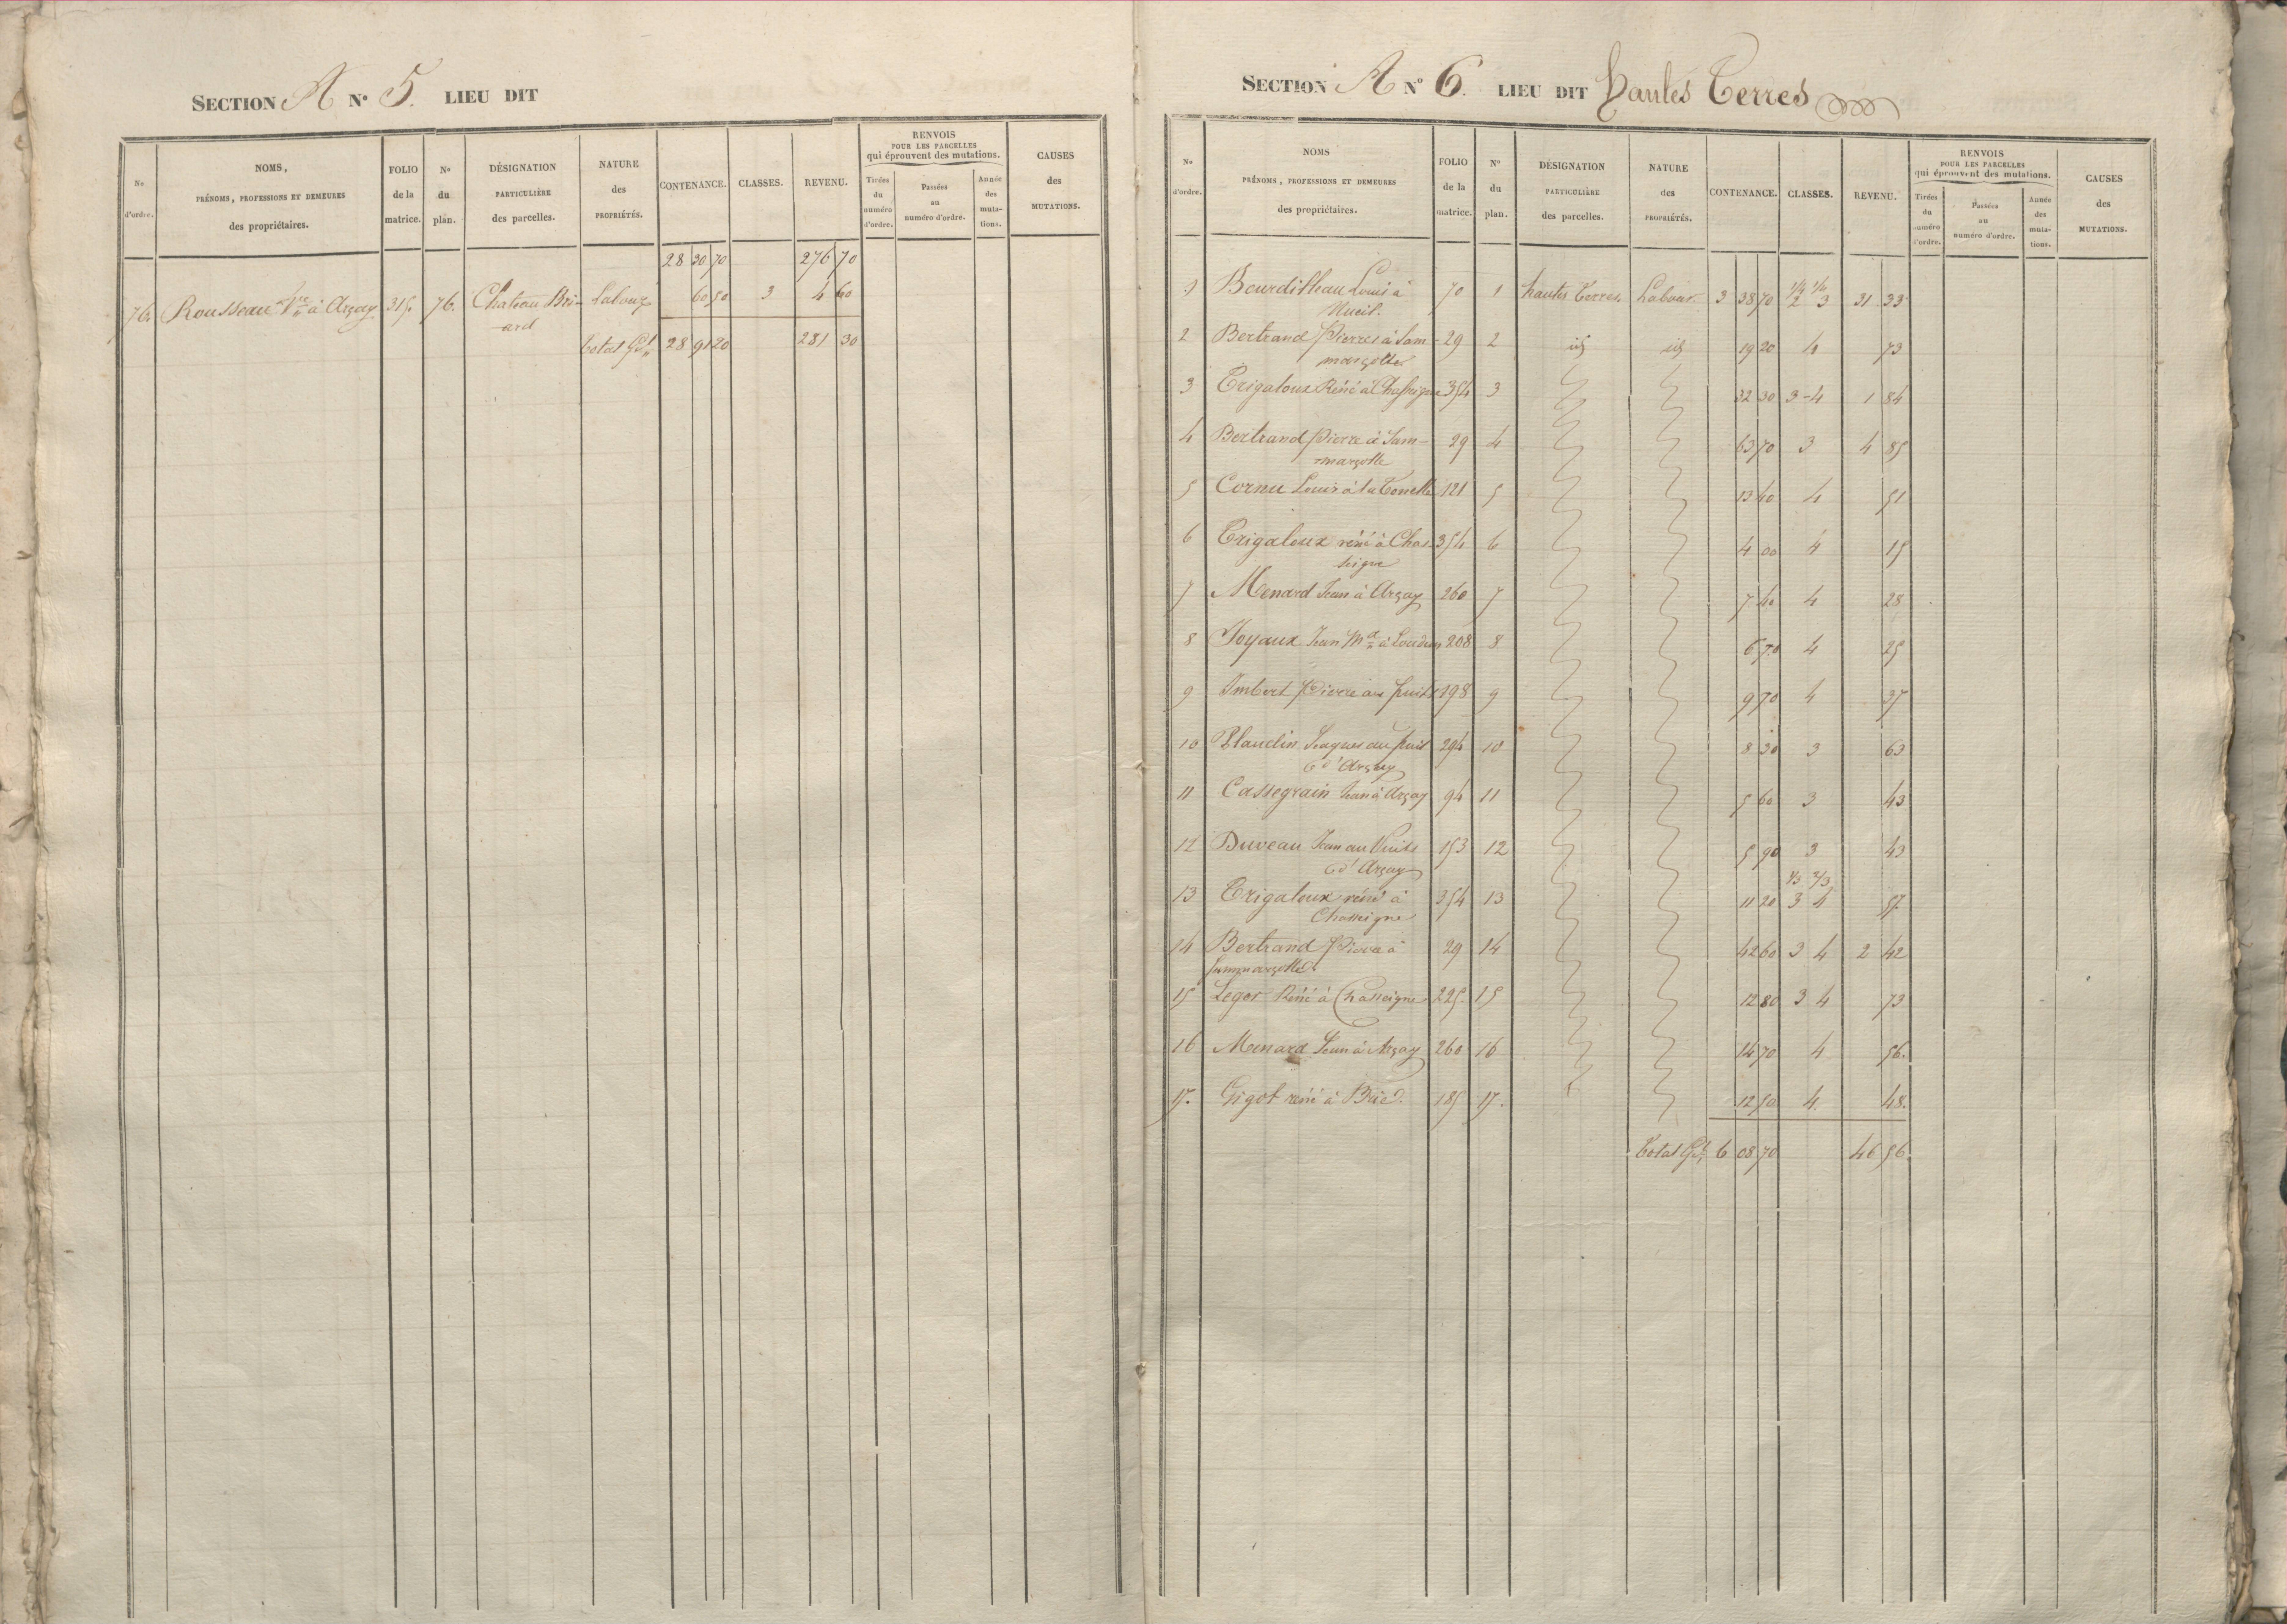 SECTION A N° 5. LIEU DIT
N° d'ordre.
NOMS, PRÉNOMS, PROFESSIONS ET DEMEURES des propriétaires.
FOLIO de la matrice.
N° du plan.
DÉSIGNATION PARTICULIÈRE des parcelles.
NATURE des PROPRIÉTÉS.
CONTENANCE.
CLASSES.
REVENU.
RENVOIS POUR LES PARCELLES qui éprouvent des mutations.
Tirées du numéro d'ordre.
Passées au numéro d'ordre.
Année des mutations.
CAUSES des MUTATIONS.
28 30 70 276 70
76. Rousseau Vve à Arçay 315. 76. Chateau Bri- Labour 60 50 3 4 60
-ard
total Gal 28 91 20 281 30
SECTION A N° 6. LIEU DIT hautes Terres
N° d'ordre.
NOMS PRÉNOMS, PROFESSIONS ET DEMEURES des propriétaires.
FOLIO de la matrice.
N° du plan.
DÉSIGNATION PARTICULIÈRE des parcelles.
NATURE des PROPRIÉTÉS.
CONTENANCE.
CLASSES.
REVENU.
RENVOIS POUR LES PARCELLES qui éprouvent des mutations.
Tirées du numéro d'ordre.
Passées au numéro d'ordre.
Année des mutations.
CAUSES des MUTATIONS.
1 Bourdilleau Louis à 70 1 hautes Terres. Labour. 3 38 70 2 3 31 33
Nueil.
2 Bertrand Pierre à Sam- 29 2 id id 19 20 4 73
marçolles
3 Trigaloux René à Chasseigne 354 3 32 30 3-4 1 84
4 Bertrand Pierre à Sam- 29 4 63 70 3 4 85
-marçolle
5 Cornu Louis à la Tonnelle 121 5 13 40 4 51
6 Trigaloux réné à Chas- 354 6 4 00 4 15
seigne
7 Menard Jean à Arçay 260 7 7 40 4 28
8 Joyaux Jean Md à Loudun 208 8 6 70 4 25
9 Imbert Pierre au puits 198 9 9 70 4 37
10 Blaudin Jaques au puit 294 10 8 30 3 63
d'Arçay
11 Cassegrain Jean à Arçay 94 11 5 60 3 43
12 Duveau Jean au Puits 153 12 5 90 3 43
d'Arçay
1/3 2/3
13 Trigaloux réné à 354 13 11 20 3 4 57.
Chasseigne
14 Bertrand Pierre à 29 14 42 60 3 4 2 42
Sammarçolles
15 Legor Réné à Chasseigne 225. 15 12 80 3 4 73
16 Menard Jean à Arçay 260 16 14 70 4 56.
17. Gigot réné à Brie. 185 17. 12 50 4. 48.
total Gal 6 08 70 46 56.